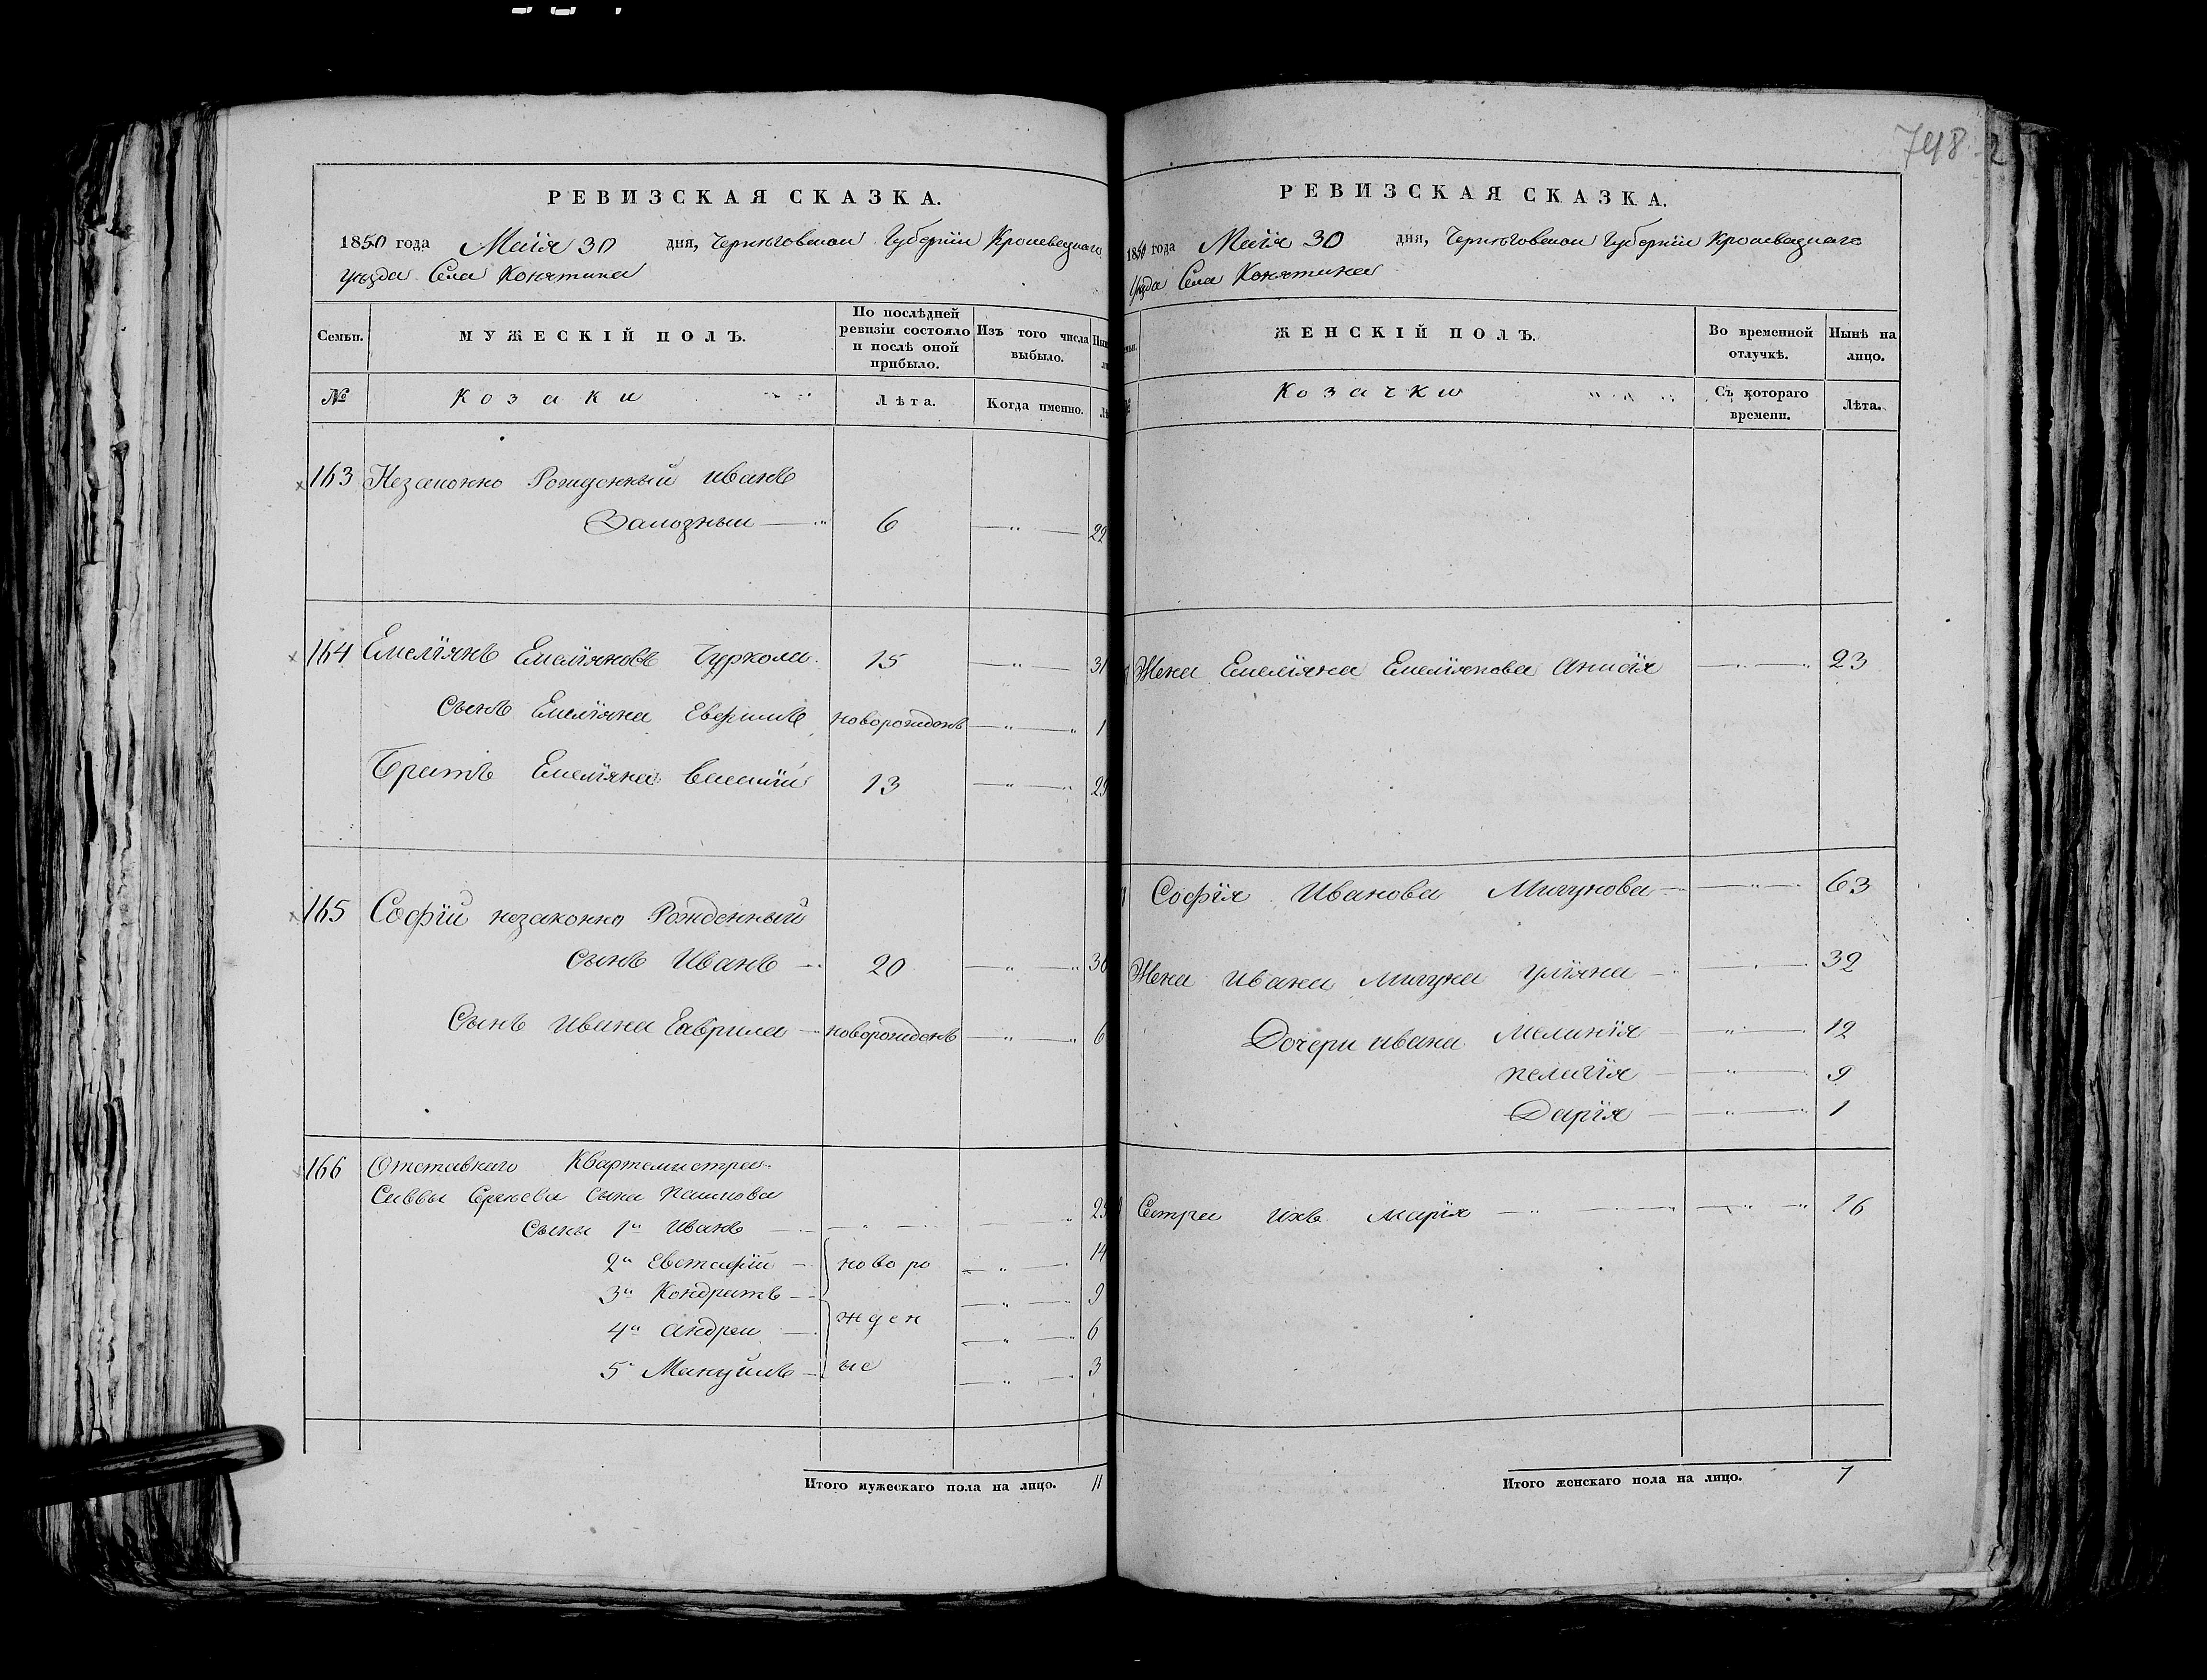 748
РЕВИЗСКАЯ СКАЗКА.
1850 года Маія 30 дня, Черниговской Губерніи Кролевецкаго
уѣзда Села Конятина
Семьи. МУЖЕСКІЙ ПОЛЪ. По послѣдней ревизіи состояло и послѣ оной прибыло. Изъ того числа выбыло.
№ Козаки Лѣта. Когда именно.
163 Незаконно Рожденный Иванъ
6 22
164 Емеліянъ Емеліяновъ 15 31
Сынъ Емеліяна новорожденъ 1
Братъ Емеліяна Василій 13 29
165 Софіи незаконно Рожденный
сынъ Иванъ 20 36
Сынъ Ивана Гаврила новорожденъ 6
166 Отставнаго Квартемистра
Саввы Сергѣева сына
Сыны 1й Иванъ 23
2й Евстафій новоро 14
3й Кондратъ 9
4й Андреи жден 6
5й Мануилъ ые 3
Итого мужескаго пола на лицо. 11
РЕВИЗСКАЯ СКАЗКА.
1850 года Маія 30 дня, Черниговской Губерніи Кролевецкаго
Уѣзда Села Конятина
ЖЕНСКІЙ ПОЛЪ. Во временной отлучкѣ. Нынѣ на лицо.
Козачки Съ котораго времени. Лѣта.
Жена Емеліяна Емеліянова 23
Софія Иванова Мигунова 63
Жена Ивана Мигуна Уліяна 32
Дочери Ивана Меланія 12
Пелагія 9
Дарія 1
Сестра Ихъ Марія 16
Итого женскаго пола на лицо. 7